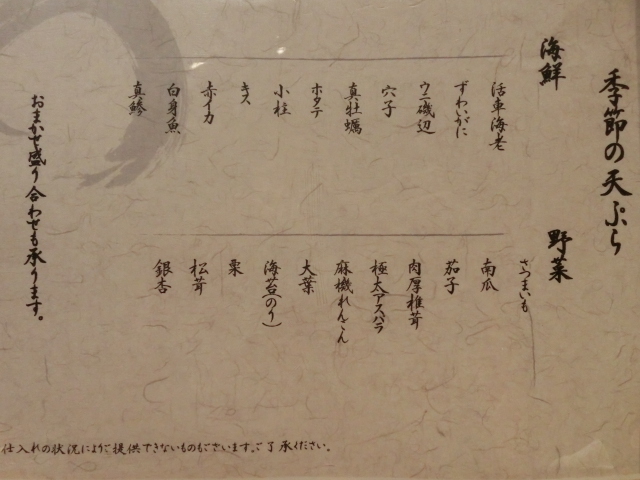 季節の天ぷら
海鮮
活車海老
ずわいがに
ウニ磯辺
穴子
真牡蠣
ホタテ
小柱
キス
赤イカ
白身魚
真鯵
野菜
さつまいも
南瓜
茄子
肉厚椎茸
極太アスパラ
麻機れんこん
大葉
海苔(のり)
栗
松茸
銀杏
おまかせ盛り合わせも承ります。
仕入れの状況によりご提供できないものもございます。ご了承ください。